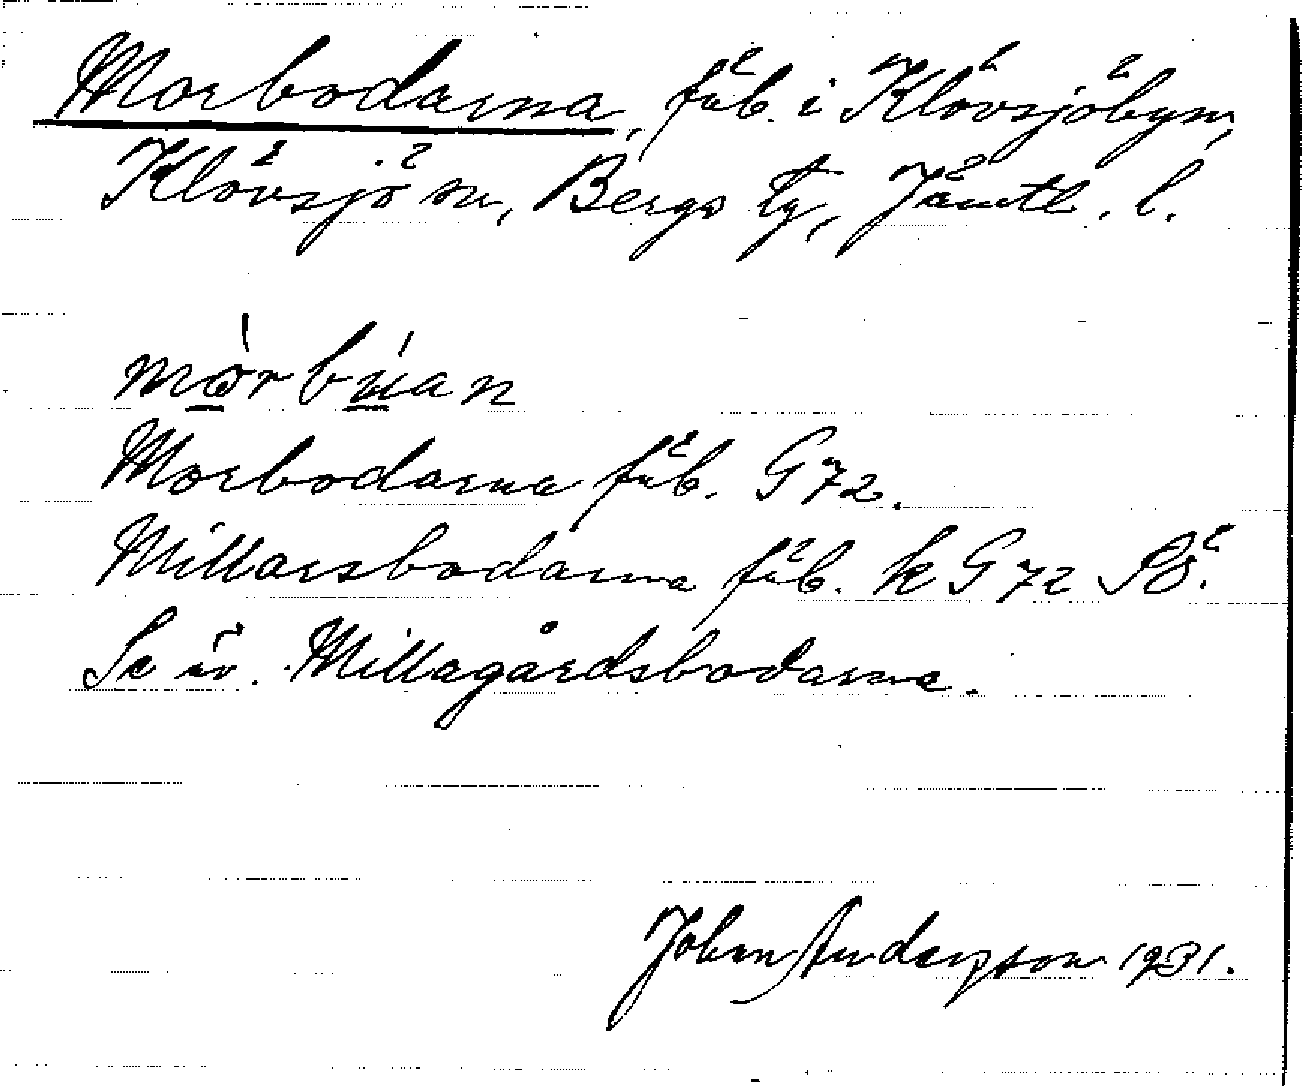 Morbodarna, fäb. i Klövsjöbyn,
Klövsjö sn, Bergs tg, Jämtl. l.
mòrbúan
Morbodarna fäb. G 72.
Millarsbodarna fäb. k G 72 SÖ.
Se äv. Millagårdsbodarna.
John Anderzson 1931.